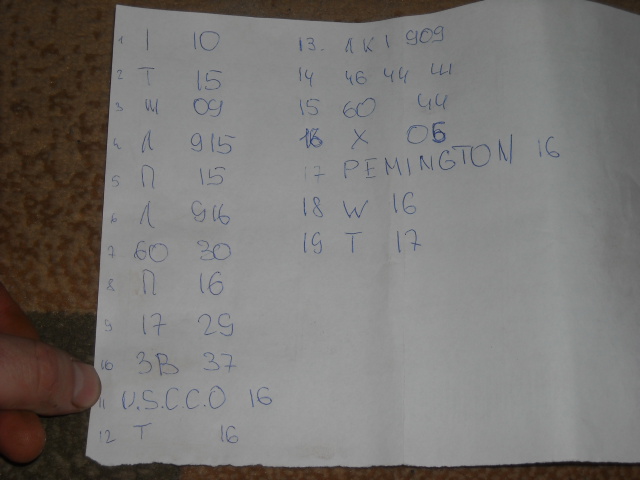 1 I 10
2 Т 15
3 Ш 09
4 Л 915
5 П 15
6 Л 916
7 60 30
8 П 16
9 17 29
10 3В 37
11 U.S.C.C.O 16
12 Т 16
13. Л К I 909
14 46 44 Ш
15 60 44
16 X 05
17 PEMINGTON 16
18 W 16
19 T 17